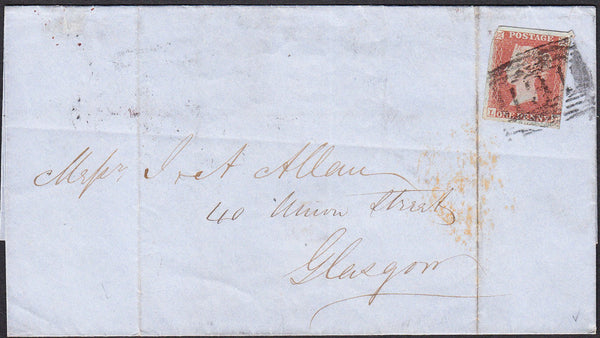 POSTAGE
ONE PENNY
Messrs J & A Allan
40 Union Street
Glasgow